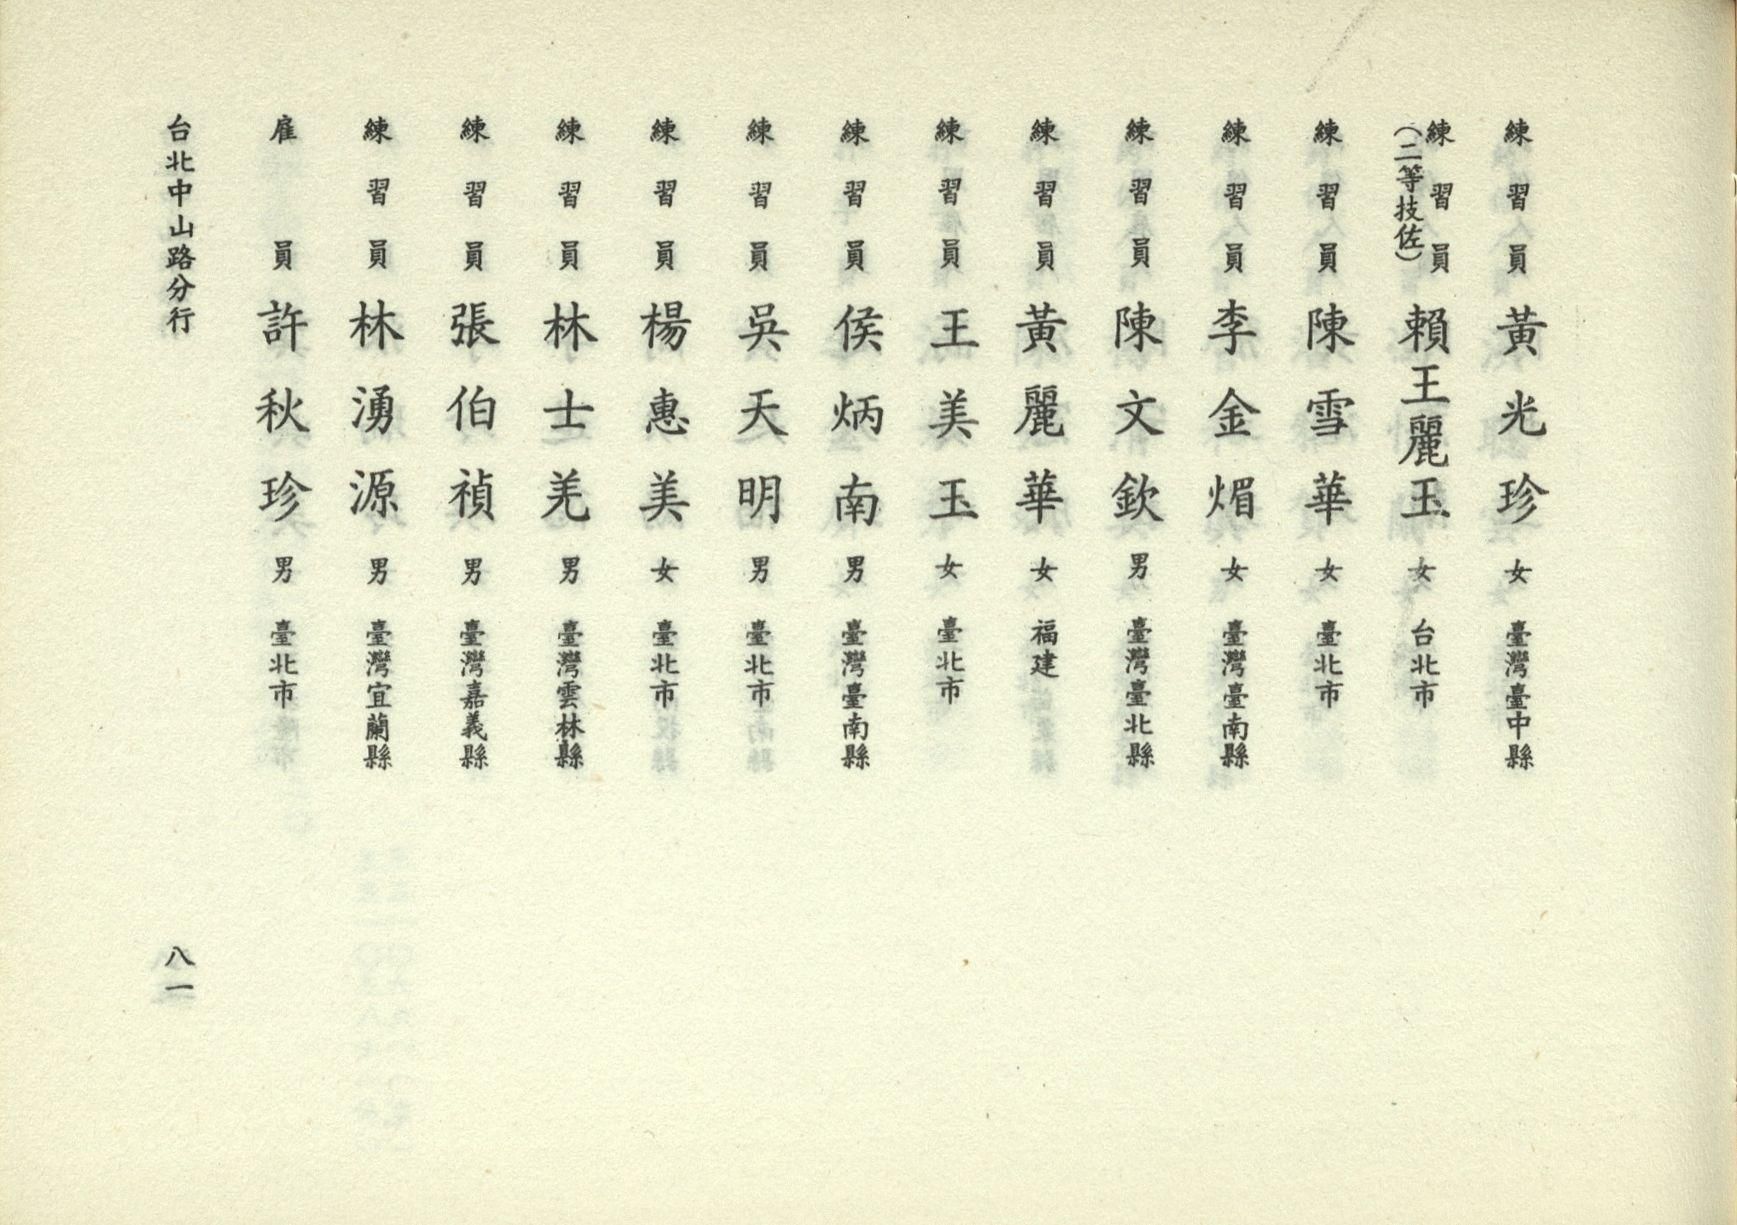 練習員黃光珍女臺灣臺中縣
練習員(二等技佐)賴王麗玉女台北市
練習員陳雪華女臺北市
練習員李金煝女臺灣臺南縣
練習員陳文欽男臺灣臺北縣
練習員黃麗華女福建
練習員王美玉女臺北市
練習員侯炳南男臺灣臺南縣
練習員吳天明男臺北市
練習員楊惠美女臺北市
練習員林士羌男臺灣雲林縣
練習員張伯禎男臺灣嘉義縣
練習員林湧源男臺灣宜蘭縣
雇員許秋珍男臺北市
台北中山路分行
八一